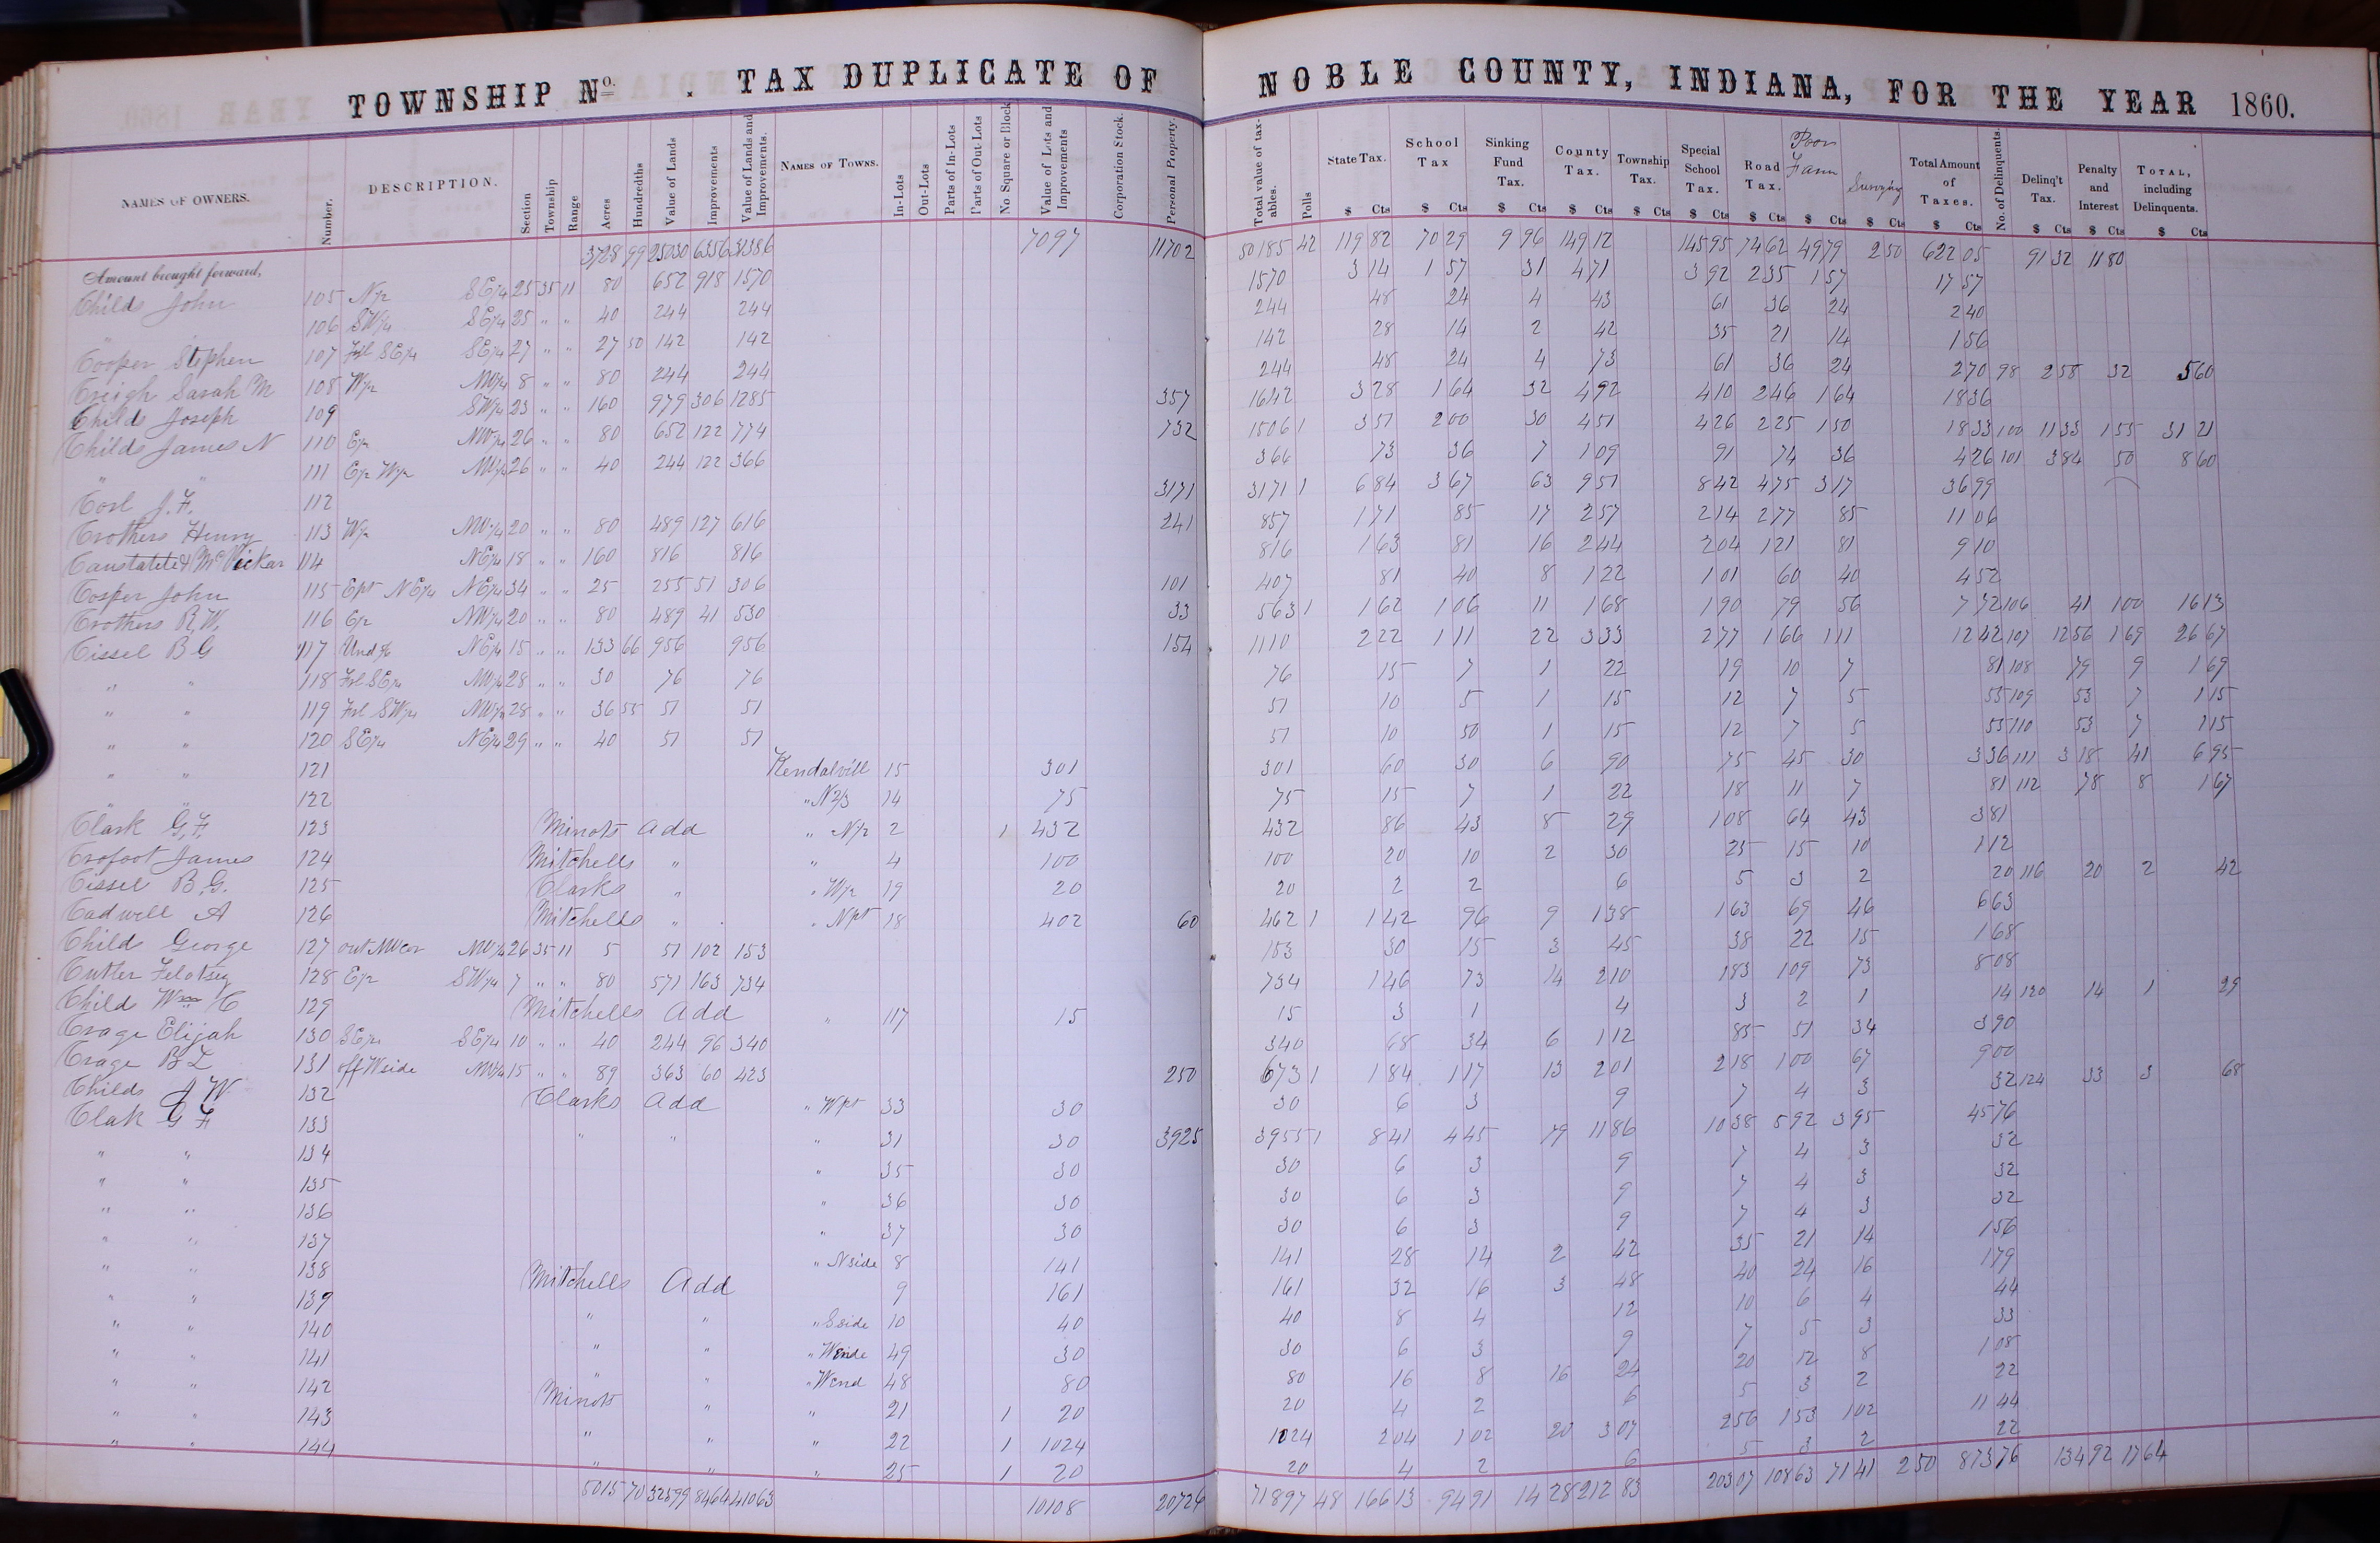 TOWNSHIP No. . TAX DUPLICATE OF NOBLE COUNTY, INDIANA, FOR THE YEAR 1860.
NAMES OF OWNERS. Number. DESCRIPTION. Section Township Range Acres Hundredths Value of Lands Improvements Value of Lands and Improvements. NAMES OF TOWNS. In-Lots Out-Lots Parts of In-Lots Parts of Out-Lots No Square or Block Value of Lots and Improvements Corporation Stock. Personal Property. Total value of taxables. Polls State Tax. School Tax Sinking Fund Tax. County Tax. Township Tax. Special School Tax. Road Tax. Poor Farm Surveying Total Amount of Taxes. No. of Delinquents. Delinq't Tax. Penalty and Interest TOTAL, including Delinquents.
$ Cts $ Cts $ Cts $ Cts $ Cts $ Cts $ Cts $ Cts $ Cts $ Cts $ Cts $ Cts $ Cts
Amount brought forward, 3728 99 25030 6356 31386 7097 11702 50185 42 119 82 70 29 9 96 149 12 145 95 74 62 49 79 2 50 622 05 91 32 11 80
Childs John 105 N1/2 SE1/4 25 35 11 80 652 918 1570 1570 3 14 1 57 31 4 71 3 92 2 35 1 57 17 57
" 106 SW1/4 SE1/4 25 " " 40 244 244 244 48 24 4 43 61 36 24 2 40
Cooper Stephen 107 Frl SE1/4 SE1/4 27 " " 27 50 142 142 142 28 14 2 42 35 21 14 1 56
Creigh Sarah M 108 W1/2 NW1/4 8 " " 80 244 244 244 48 24 4 73 61 36 24 2 70 98 2 58 32 5 60
Childs Joseph 109 SW1/4 23 " " 160 979 306 1285 357 1642 3 28 1 64 32 4 92 4 10 2 46 1 64 18 36
Childs James N 110 E1/2 NW1/4 26 " " 80 652 122 774 732 1506 1 3 51 2 00 30 4 51 4 26 2 25 1 50 18 33 100 11 33 1 55 31 21
" " 111 E1/2 W1/2 NW1/4 26 " " 40 244 122 366 366 73 36 7 1 09 91 74 36 4 26 101 3 84 50 8 60
Corl J. F. 112 3171 3171 1 6 84 3 67 63 9 51 8 42 4 75 3 17 36 99
Crothers Henry 113 W1/2 NW1/4 20 " " 80 489 127 616 241 857 1 71 85 17 2 57 2 14 2 77 85 11 06
114 NE1/4 18 " " 160 816 816 816 1 63 81 16 2 44 2 04 1 21 81 9 10
Cosper John 115 Ept NE1/4 NE1/4 34 " " 25 255 51 306 101 407 81 40 8 1 22 1 01 60 40 4 52
Crothers R. W. 116 E1/2 NW1/4 20 " " 80 489 41 530 33 563 1 1 62 1 06 11 1 68 1 90 79 56 7 72 106 41 1 00 16 13
Cissel B G 117 NE1/4 15 " " 133 66 956 956 154 1110 2 22 1 11 22 3 33 2 77 1 66 1 11 12 42 107 12 56 1 69 26 67
" " 118 Frl SE1/4 NW1/4 28 " " 30 76 76 76 15 7 1 22 19 10 7 81 108 79 9 1 69
" " 119 Frl SW1/4 NW1/4 28 " " 36 55 51 51 51 10 5 1 15 12 7 5 55 109 53 7 1 15
" " 120 SE1/4 NE1/4 29 " " 40 51 51 51 10 50 1 15 12 7 5 55 110 53 7 1 15
" " 121 Kendalvill 15 301 301 60 30 6 90 75 45 30 3 36 111 3 18 41 6 95
" " 122 " N2/3 14 75 75 15 7 1 22 18 11 7 81 112 78 8 1 67
Clark G. F. 123 Minots Add " N1/2 2 1 432 432 86 43 8 29 1 08 64 43 3 81
Crofoot James 124 Mitchells " " 4 100 100 20 10 2 30 25 15 10 1 12
Cissel B. G. 125 Clarks " " W1/2 19 20 20 2 2 6 5 3 2 20 116 20 2 42
Cadwell A 126 Mitchells " " Npt 18 402 60 462 1 1 42 96 9 1 38 1 63 69 46 6 63
Childs George 127 out NW cor NW1/4 26 35 11 5 51 102 153 153 30 15 3 45 38 22 15 1 68
Cutler 128 E1/2 SW1/4 7 " " 80 571 163 734 734 1 46 73 14 2 10 1 83 1 09 73 8 08
Child Wm C 129 Mitchells Add " 117 15 15 3 1 4 3 2 1 14 120 14 1 29
Crage Elijah 130 SE1/4 SE1/4 10 " " 40 244 96 340 340 68 34 6 1 12 85 51 34 3 90
Crage B L 131 off W side NW1/4 15 " " 89 363 60 423 250 673 1 1 84 1 17 13 2 01 2 18 1 00 67 9 00
Childs J W 132 Clarks Add " Wpt 33 30 30 6 3 9 7 4 3 32 124 33 3 68
Clak G F 133 " " " 31 30 3925 3955 1 8 41 4 45 79 11 86 10 38 5 92 3 95 45 76
" " 134 " 35 30 30 6 3 9 7 4 3 32
" " 135 " 36 30 30 6 3 9 7 4 3 32
" " 136 " 37 30 30 6 3 9 7 4 3 32
" " 137 " N side 8 141 141 28 14 2 42 35 21 14 1 56
" " 138 Mitchells Add 9 161 161 32 16 3 48 40 24 16 1 79
" " 139 " " " S side 10 40 40 8 4 12 10 6 4 44
" " 140 " " " W side 49 30 30 6 3 9 7 5 3 33
" " 141 " " " W end 48 80 80 16 8 16 24 20 12 8 1 08
" " 142 Minots " " 21 1 20 20 4 2 6 5 3 2 22
" " 143 " " " 22 1 1024 1024 2 04 1 02 20 3 07 2 56 1 53 1 02 11 44
" " 144 " " " 25 1 20 20 4 2 6 5 3 2 22
5015 70 32599 8464 41063 10108 20724 71897 48 166 13 94 91 14 28 212 83 203 07 108 63 71 41 2 50 873 76 134 92 17 64